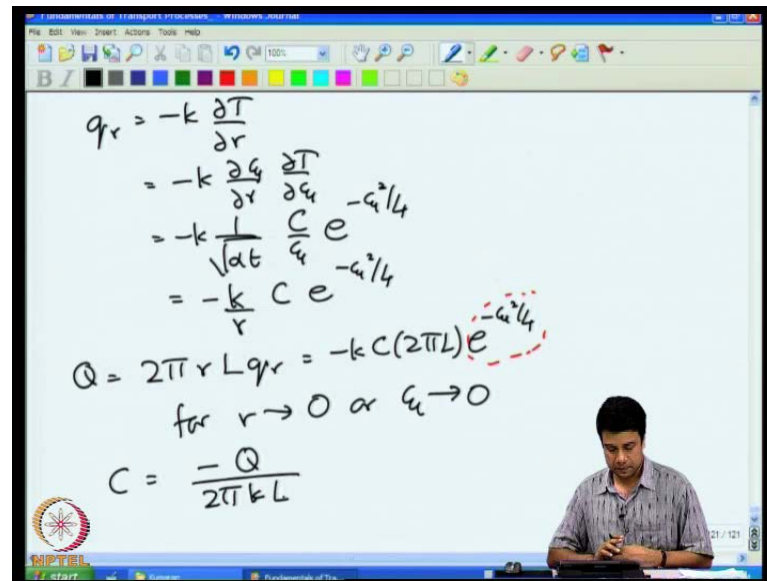 Fundamentals of Transport Processes_ - Windows Journal
File Edit View Insert Actions Tools Help
100%
B I
qᵣ = -k ∂T/∂r
= -k ∂ξ/∂r ∂T/∂ξ
= -k 1/√αt C/ξ e^(-ξ²/4)
= -k/r C e^(-ξ²/4)
Q = 2πrLqᵣ = -kC(2πL) e^(-ξ²/4)
for r → 0 or ξ → 0
C = -Q/2πkL
121 / 121
NPTEL
start
Fundamentals of Tra...